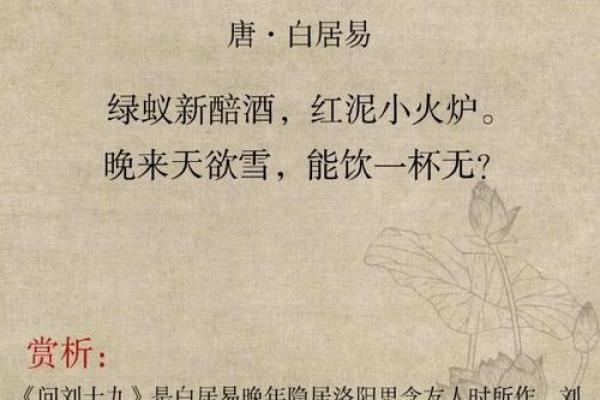 唐·白居易
绿蚁新醅酒，红泥小火炉。
晚来天欲雪，能饮一杯无？
赏析：
《问刘十九》是白居易晚年隐居洛阳思念友人时所作。刘